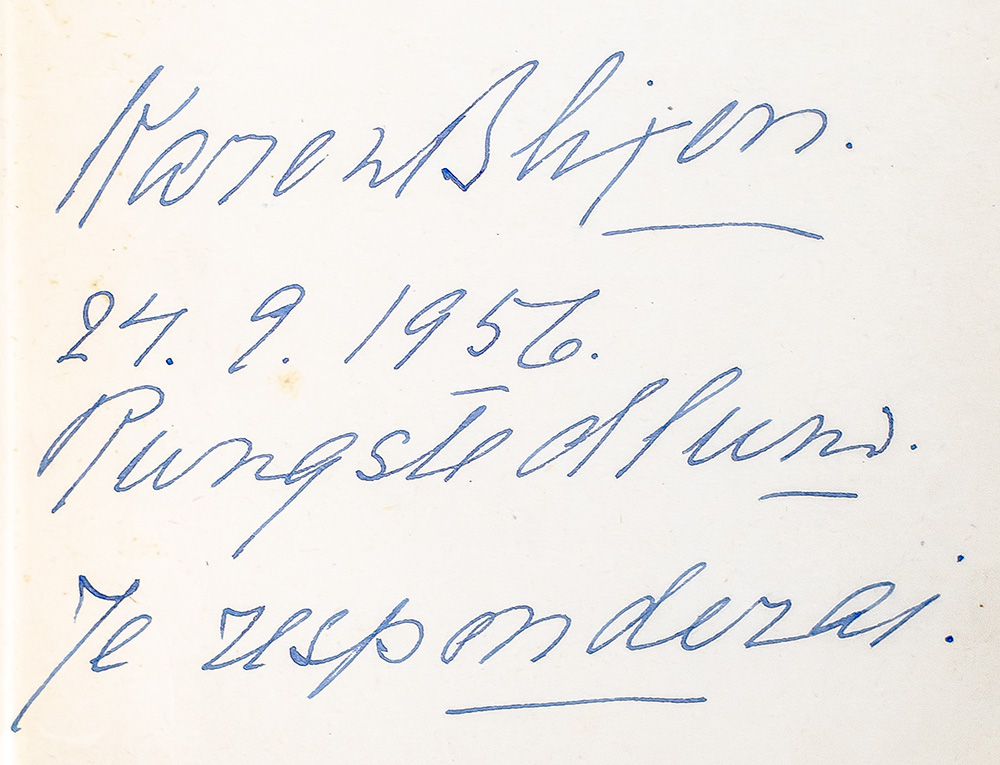 Karen Blixen.
24. 9. 1956.
Rungstedlund.
Je responderai.